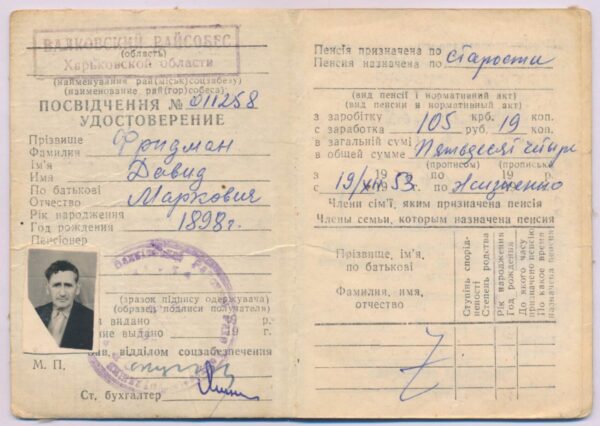 ВАЛКОВСКИЙ РАЙСОБЕС
(область)
Харьковской области
(найменування рай(міськ)соцзабезу)
(наименование рай(гор)собеса)
ПОСВІДЧЕННЯ № 011258
УДОСТОВЕРЕНИЕ
Прізвище
Фамилия Фридман
Ім'я
Имя Довид
По батькові
Отчество Маркович
Рік народження
Год рождения 1898 г.
Пенсіонер
(зразок підпису одержувача)
(образец подписи получателя)
видано 19 р.
выдано 19 г.
відділом соцзабезпечення
М. П.
Ст. бухгалтер
Пенсія призначена по
Пенсия назначена по старости
(вид пенсії і нормативний акт)
(вид пенсии и нормативный акт)
з заробітку крб. коп.
с заработка 105 руб. 19 коп.
в загальній сумі
в общей сумме Пятьдесят четыре
(прописом) (прописью)
с 19/XII 53 г. по Жизненно
Члени сім'ї, яким призначена пенсія
Члены семьи, которым назначена пенсия
Прізвище, ім'я,
по батькові
Фамилия, имя,
отчество
Ступінь спорід-
неності
Степень родства
Рік народження
Год рождения
До якого часу
призначено пенсію
По какое время
назначена пенсия